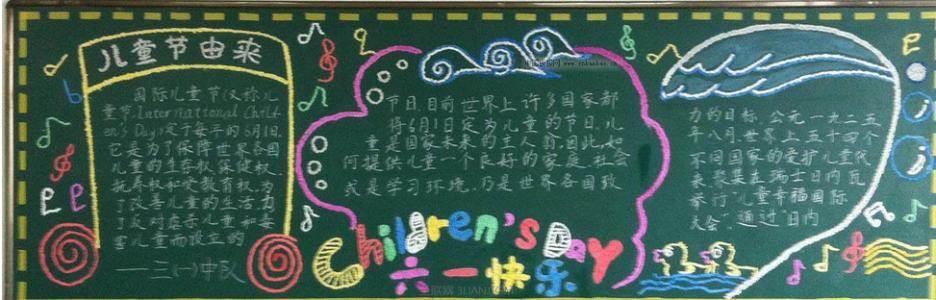 儿童节由来
国际儿童节(又称儿
童节,International Child
en's Day)定于每年的6月1日,
它是为了保障世界各国
儿童的生存权、保健权、
抚养权和受教育权,为
了改善儿童的生活,为
了反对虐杀儿童和毒
害儿童而设立的
——三(一)中队
节日,目前世界上许多国家都
将6月1日定为儿童的节日,儿
童是国家未来的主人翁,因此,如
何提供儿童一个良好的家庭、社会
或是学习环境,乃是世界各国致
力的目标,公元一九二五
年八月,世界上五十四个
不同国家的爱护儿童代
表,聚集在瑞士日内瓦
举行"儿童幸福国际
大会",通过"日内
Children's Day
六一快乐